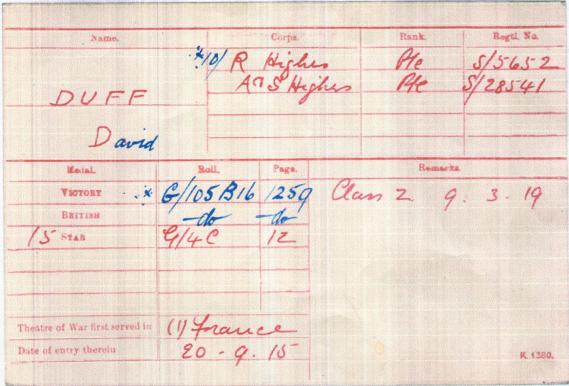 Name. Corps. Rank. Regtl. No.
(10) R Highrs Pte S/5652
A & S Highrs Pte S/28541
DUFF
David
Medal. Roll. Page. Remarks.
VICTORY G/105 B16 1259 Class Z 9. 3. 19
BRITISH -do- -do-
15 STAR G/4 C 12
Theatre of War first served in (1) France
Date of entry therein 20 - 9. 15
K. 1380.